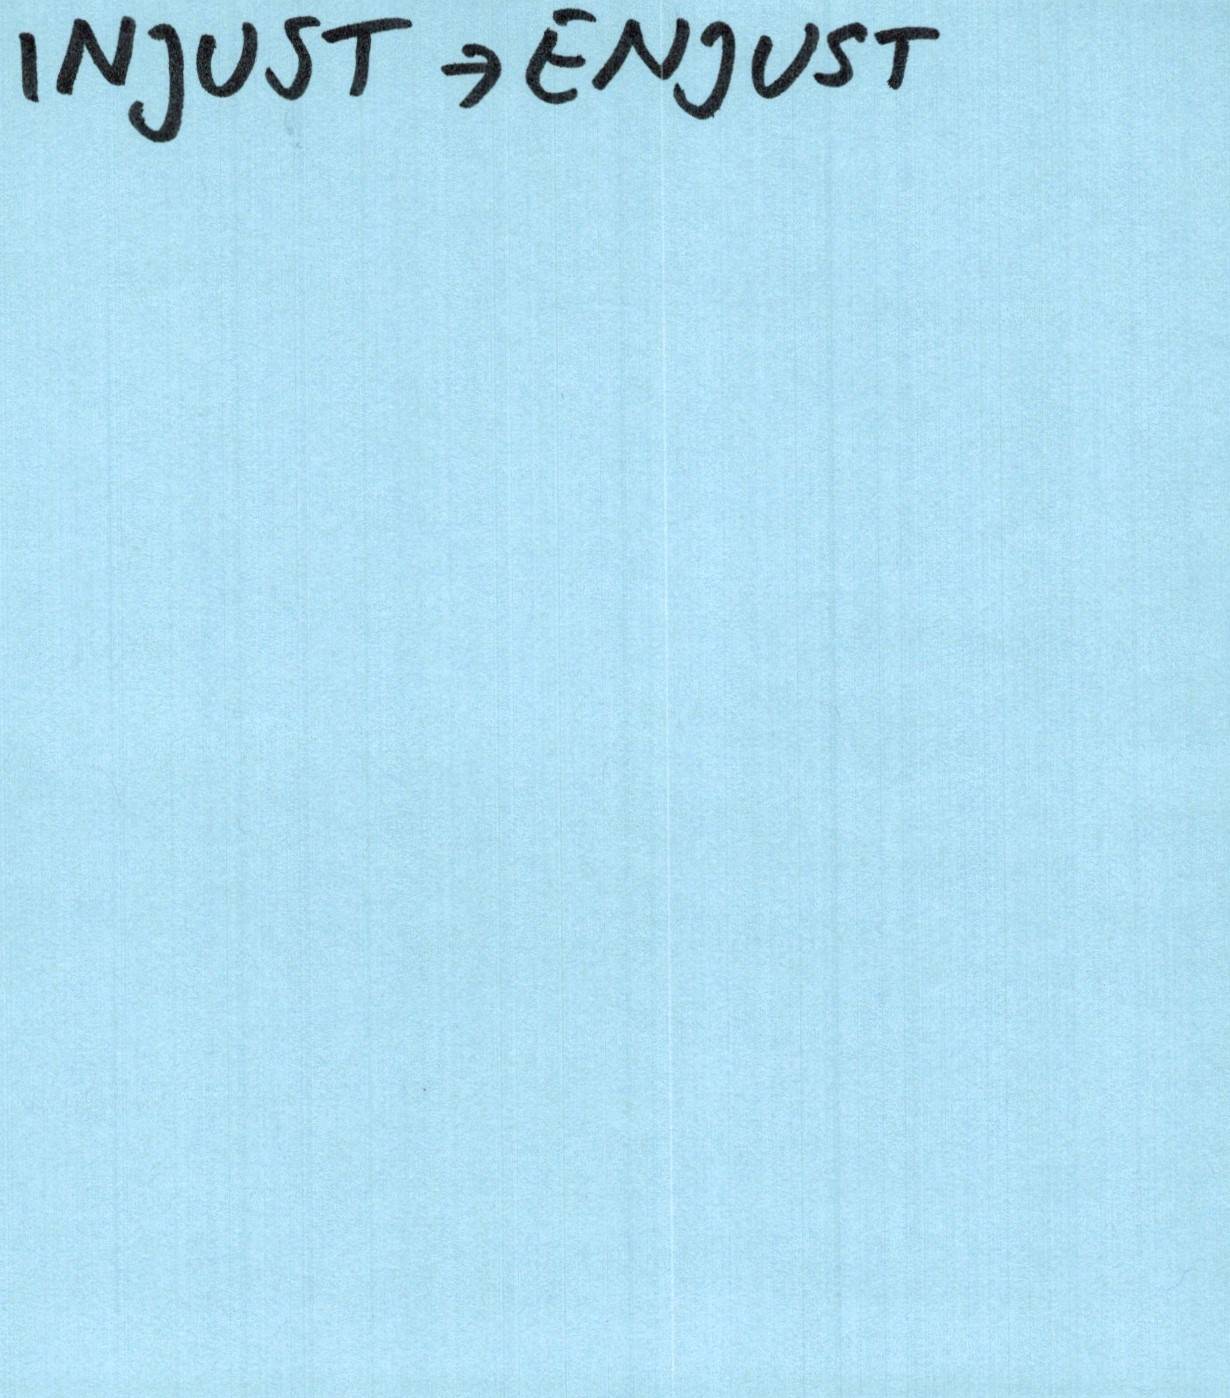 INJUST → ENJUST